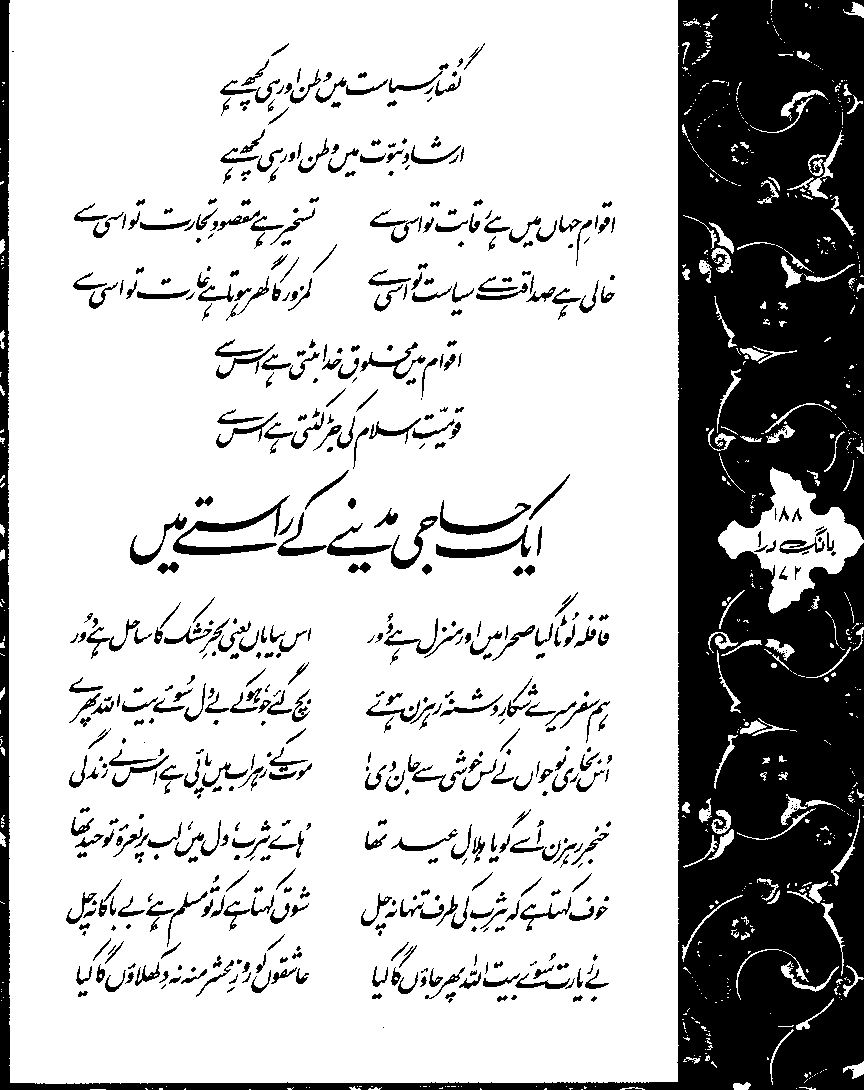 گفتارِ سیاست میں وطن اور ہی کچھ ہے
ارشادِ نبوّت میں وطن اور ہی کچھ ہے
اقوامِ جہاں میں ہے رقابت تو اسی سے تسخیر ہے مقصودِ تجارت تو اسی سے
خالی ہے صداقت سے سیاست تو اسی سے کمزور کا گھر ہوتا ہے غارت تو اسی سے
اقوام میں مخلوقِ خدا بٹتی ہے اس سے
قومیّتِ اسلام کی جڑ کٹتی ہے اس سے
ایک حاجی مدینے کے راستے میں
قافلہ لُوٹا گیا صحرا میں اور منزل ہے دُور اس بیاباں یعنی بحرِ خشک کا ساحل ہے دُور
ہم سفر میرے شکارِ دشنۂ رہزن ہوئے بچ گئے جو، ہو کے بے دل سُوئے بیت اللہ پھرے
اُس بخاری نوجواں نے کس خوشی سے جان دی! موت کے زہراب میں پائی ہے اُس نے زندگی
خنجرِ رہزن اُسے گویا ہلالِ عید تھا ہائے یثرب دل میں، لب پر نعرۂ توحید تھا
خوف کہتا ہے کہ یثرب کی طرف تنہا نہ چل شوق کہتا ہے کہ تُو مسلم ہے، بے باکانہ چل
بے زیارت سُوئے بیت اللہ پھر جاؤں گا کیا عاشقوں کو روزِ محشر منہ نہ دکھلاؤں گا کیا
۱۸۸
بانگِ درا
۱۷۲